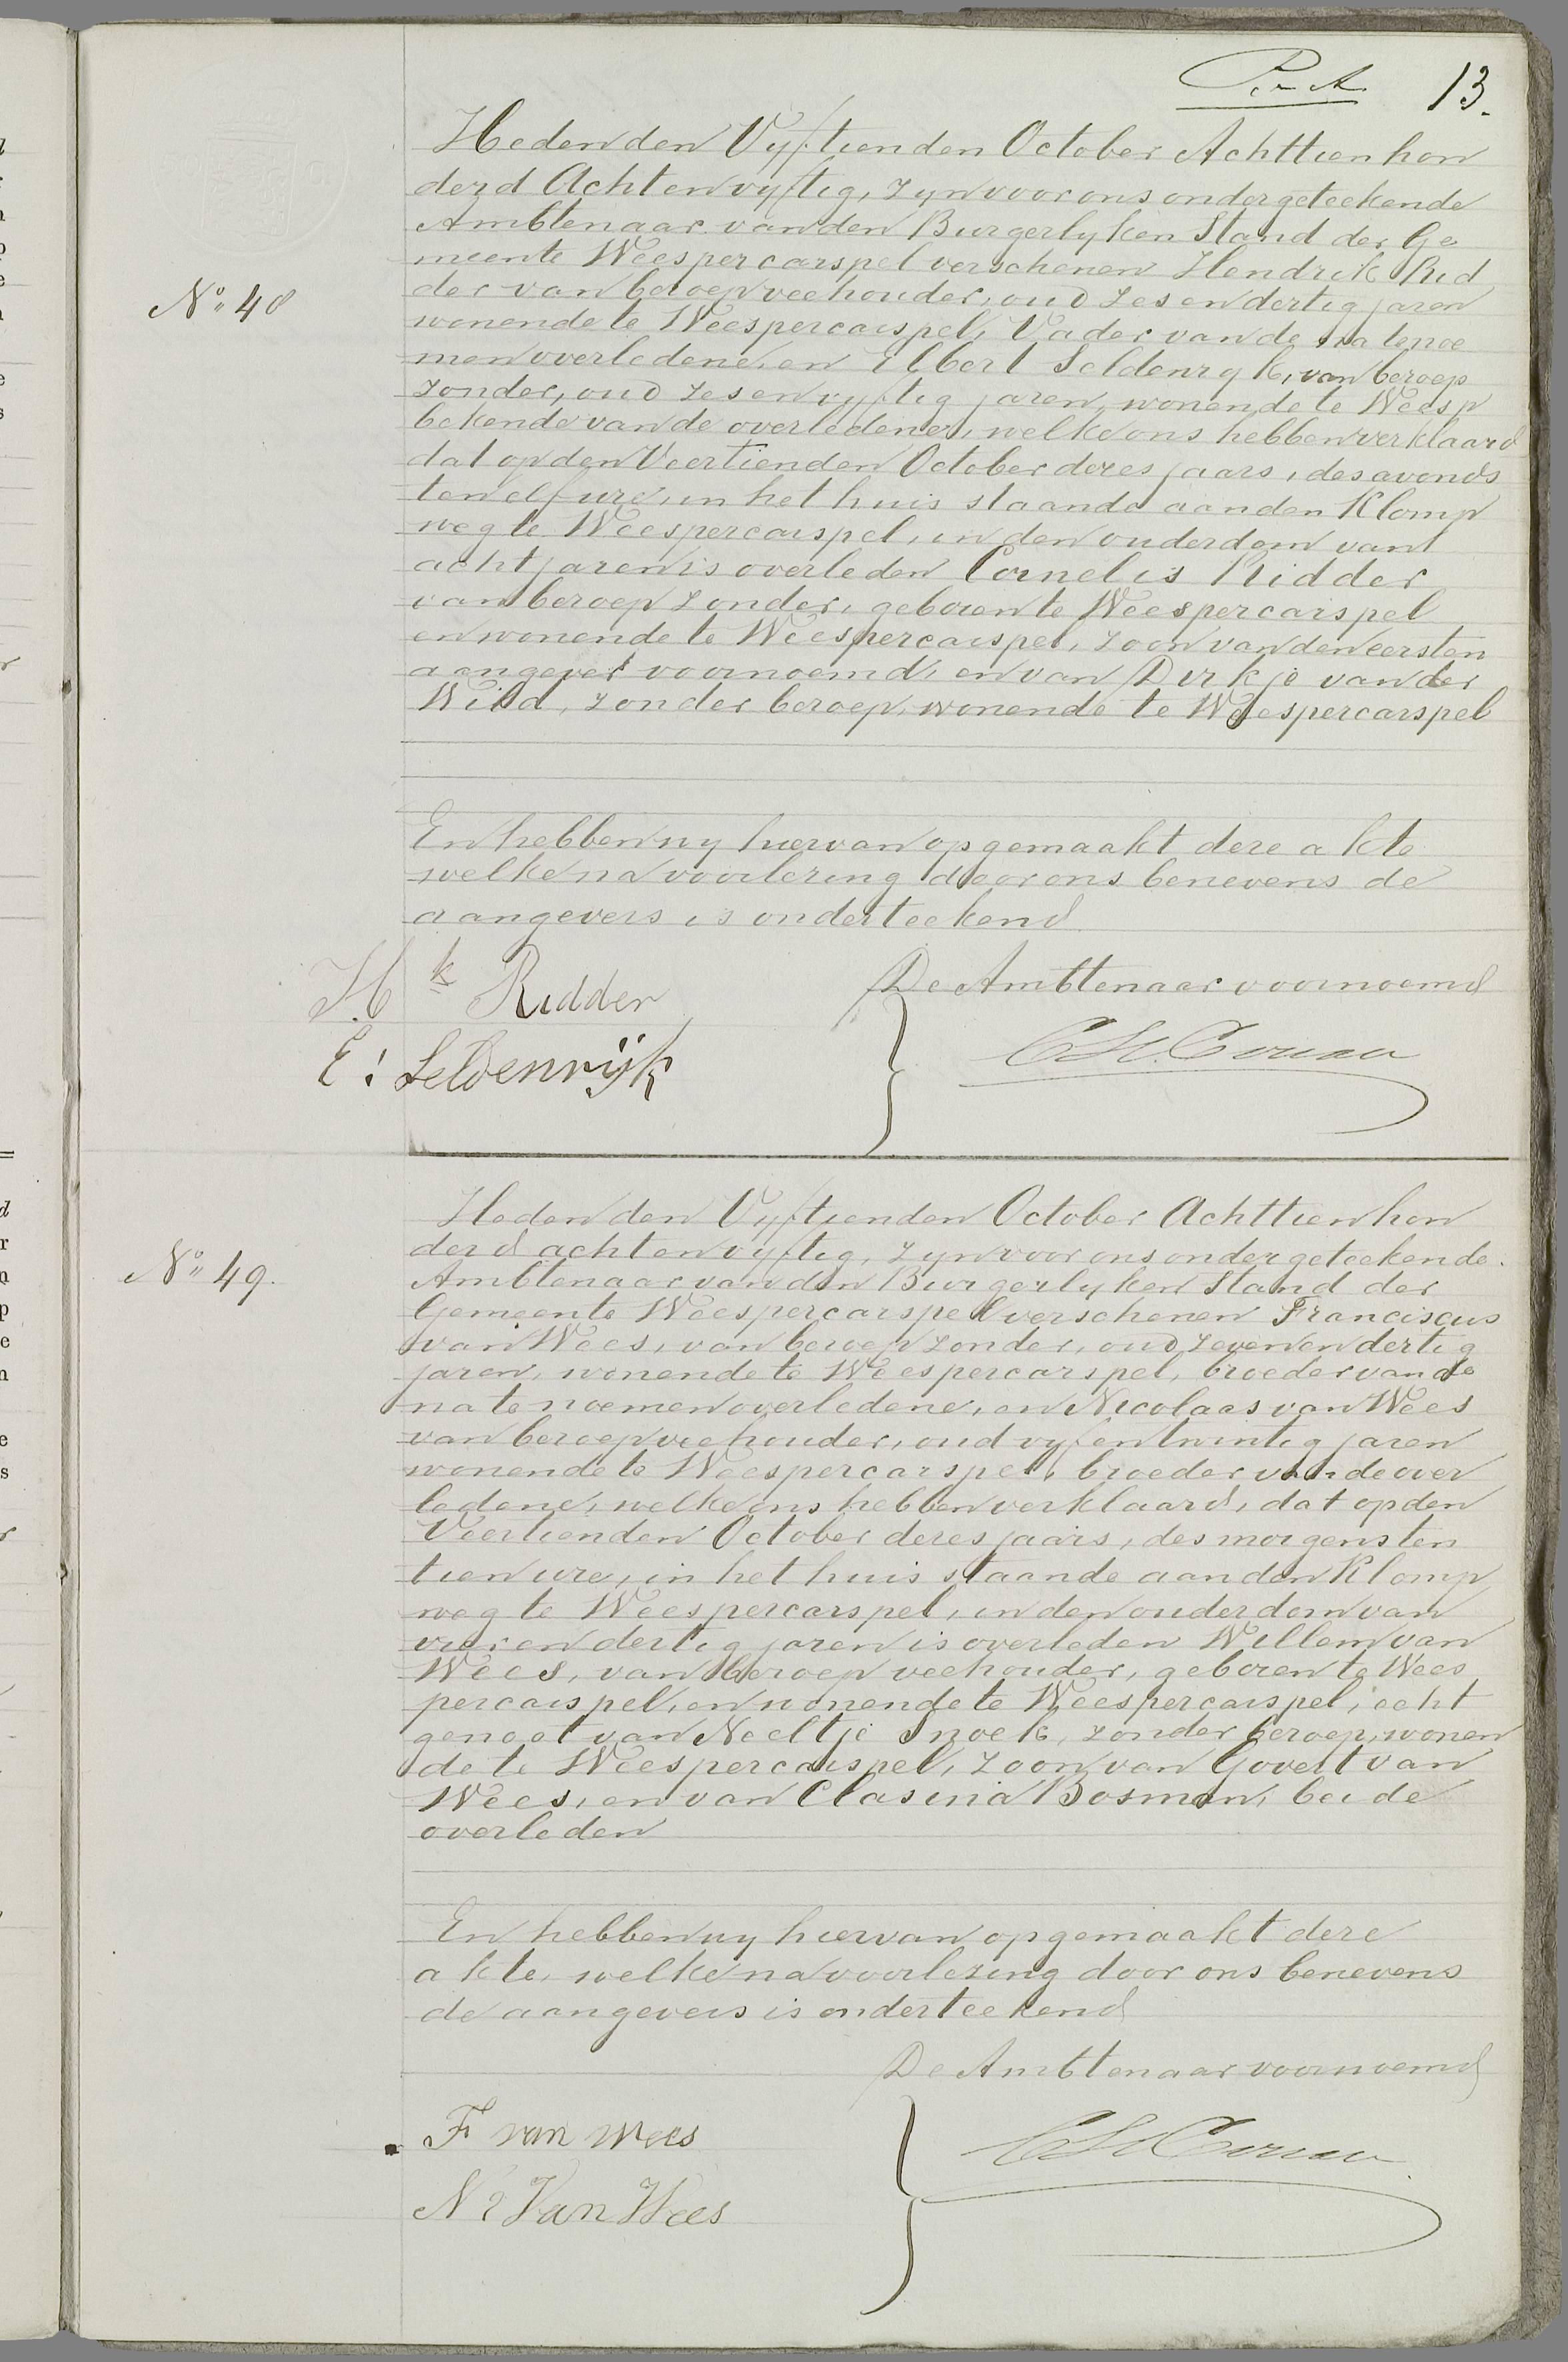 13.
Heden den Vyftienden October Achttienhon
derd Achtenvyftig, zyn voor ons ondergeteekende
Ambtenaar van den Burgerlyken Stand der Ge
meente Weespercarspel verschenen Hendrik Rid
der van beroep veehouder, oud zesendertig jaren
No 48
wonende te Weespercarspel, Vader van de na tenoe
men overledene, en Elbert Seldenryk, van beroep
zonder, oud zesenvyftig jaren, wonende te Weesp
bekende van de overledene, welke ons hebben verklaard
dat op den Veertienden October dezes jaars, des avonds
ten elf ure, in het huis staande aan den Klomp
weg te Weespercarspel, in den ouderdom van
acht jaren is overleden Cornelis Ridder
van beroep zonder, geboren te Weespercarspel
en wonende te Weespercarspel, zoon van den eersten
aangever voornoemd, en van Dirkje van der
Wild, zonder beroep, wonende te Weespercarspel
En hebben wy hiervan opgemaakt deze akte
welke na voorlezing door ons benevens de
aangevers is onderteekend
De Ambtenaar voornoemd
Hk Ridder
E: Seldenrijk
Heden den Vyftienden October Achttienhon
derd achtenvyftig, zyn voor ons ondergeteekende
No 49.
Ambtenaar van den Burgerlyken Stand der
Gemeente Weespercarspel verschenen Franciscus
van Wees, van beroep zonder, oud zevenendertig
jaren, wonende te Weespercarspel, broeder van de
na te noemen overledene, en Nicolaas van Wees
van beroep veehouder, oud vyfentwintig jaren
wonende te Weespercarspel, broeder van de over
ledene, welke ons hebben verklaard, dat op den
Veertienden October dezes jaars, des morgens ten
tien ure, in het huis staande aan den Klomp
weg te Weespercarspel, in den ouderdom van
vierendertig jaren is overleden Willem van
Wees, van beroep veehouder, geboren te Wees
percarspel, en wonende te Weespercarspel, echt
genoot van Neeltje Snoek, zonder beroep, wonen
de te Weespercarspel, zoon van Govert van
Wees, en van Clasina Bosman, beide
overleden
En hebben wy hiervan opgemaakt deze
akte, welke na voorlezing door ons benevens
de aangevers is onderteekend
De Ambtenaar voornoemd
F van Wees
Ns Van Wees